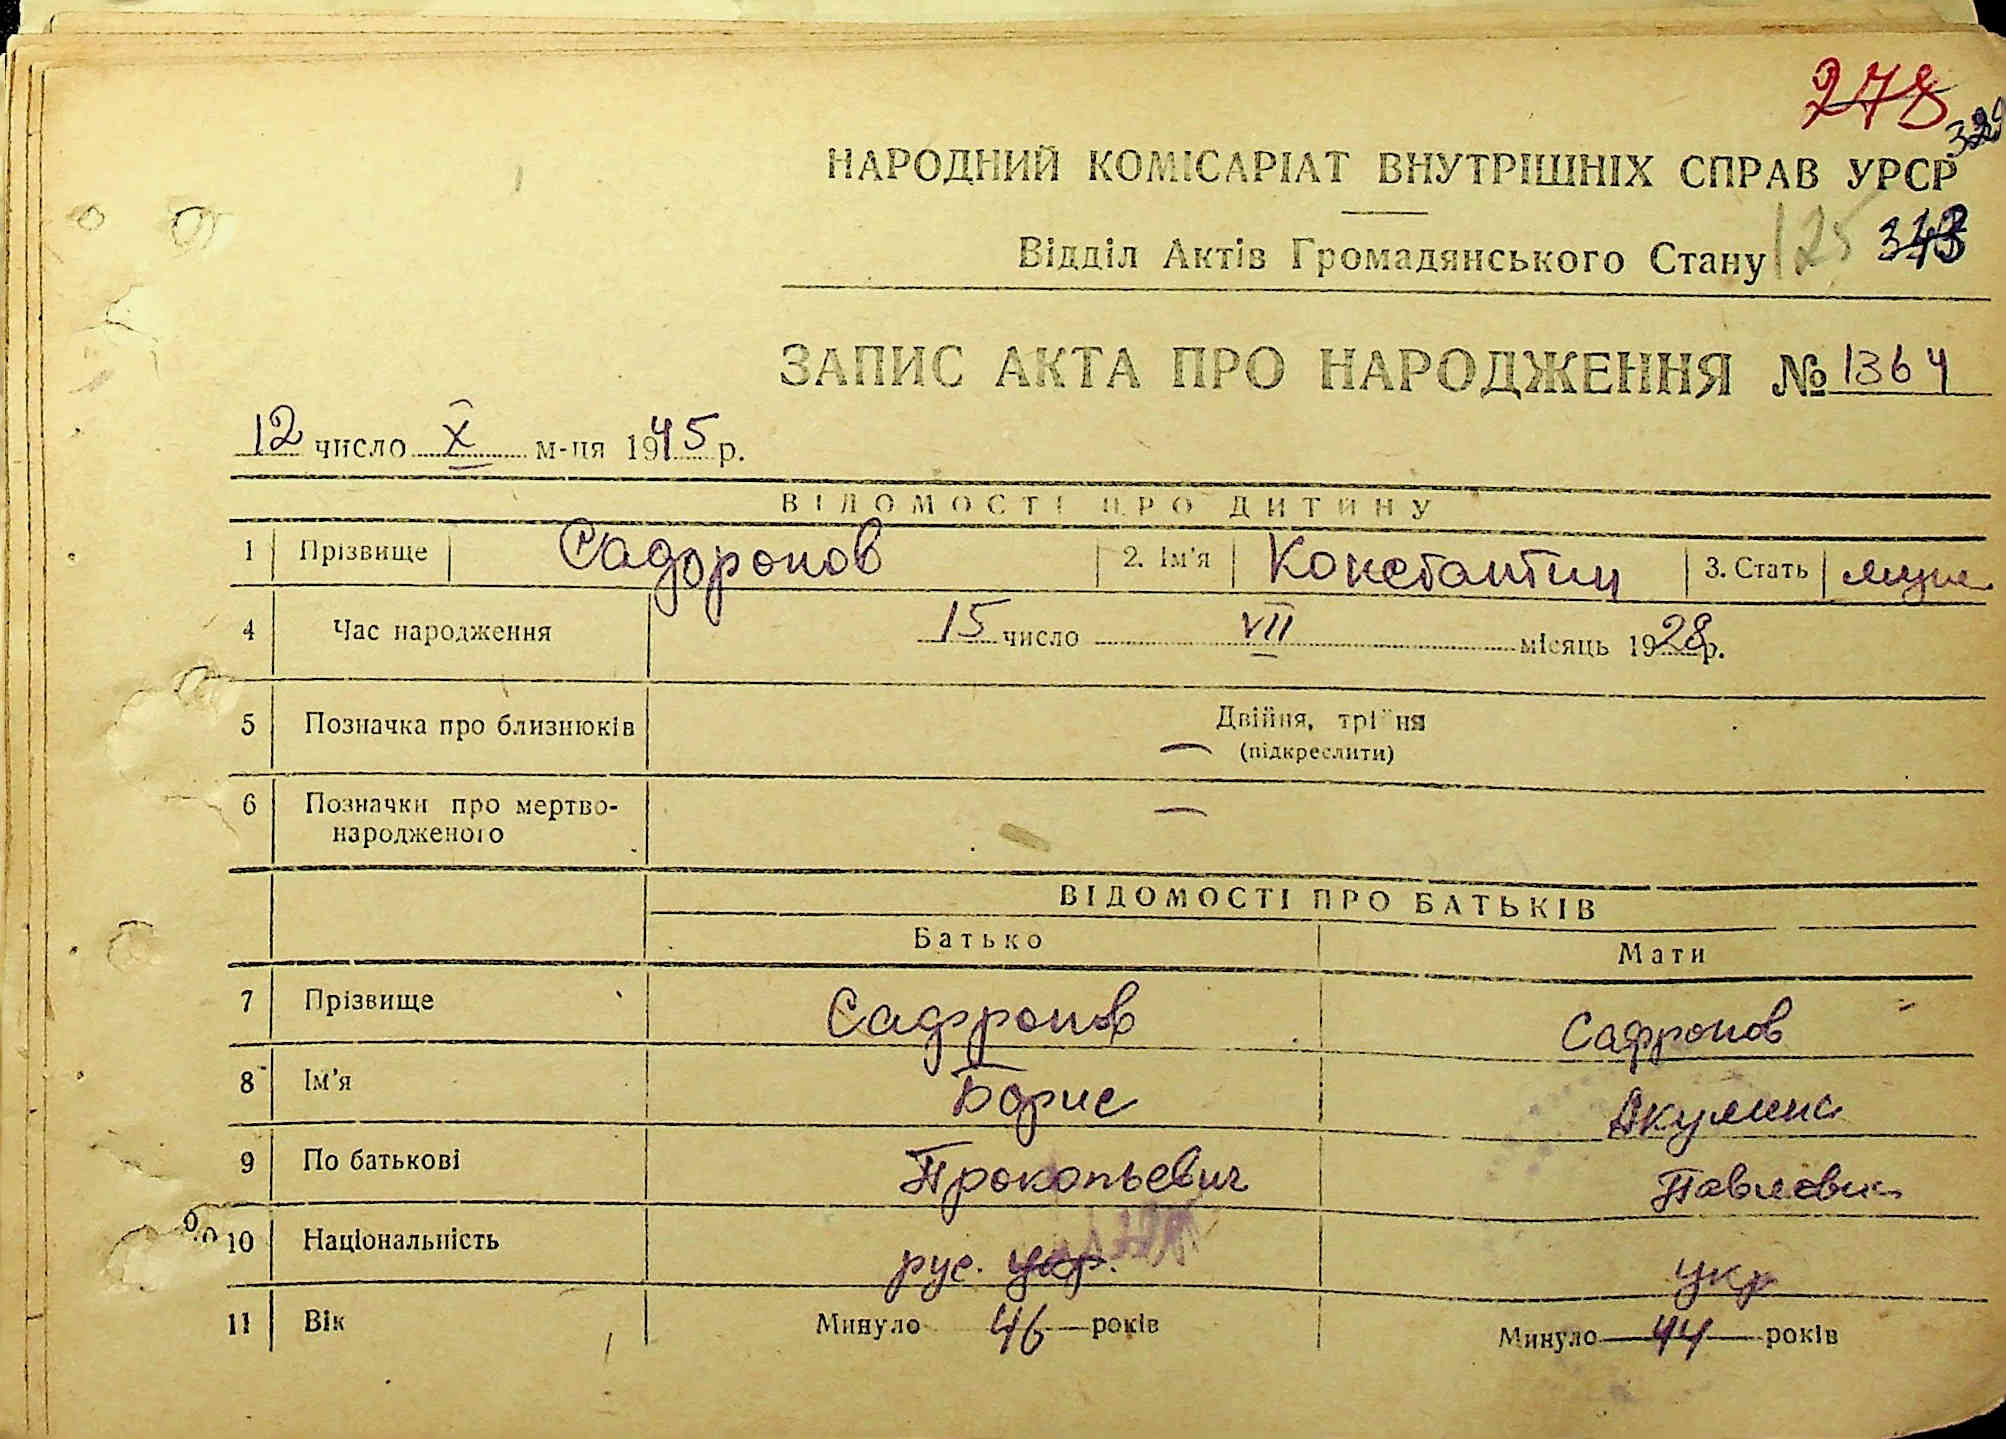 278
329
НАРОДНИЙ КОМІСАРІАТ ВНУТРІШНІХ СПРАВ УРСР
Відділ Актів Громадянського Стану 125 343
ЗАПИС АКТА ПРО НАРОДЖЕННЯ № 1364
12 число X м-ця 1945 р.
ВІДОМОСТІ ПРО ДИТИНУ
1 Прізвище Сафронов 2. Ім'я Константин 3. Стать муж
4 Час народження 15 число VII місяць 1928 р.
5 Позначка про близнюків Двійня, трійня
— (підкреслити)
6 Позначки про мертво- —
народженого
ВІДОМОСТІ ПРО БАТЬКІВ
Батько Мати
7 Прізвище Сафронов Сафронов
8 Ім'я Борис Акулина
9 По батькові Прокопьевич Павловна
10 Національність рус. укр. укр
11 Вік Минуло 46 років Минуло 44 років